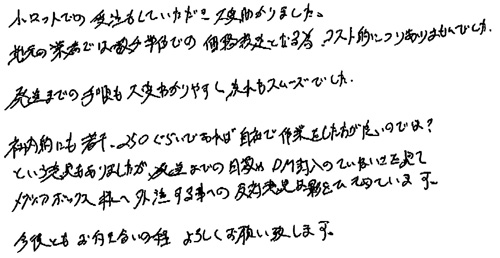 小ロットでの受注もしていただき大変助かりました。
地元の業者では数千単位での価格設定となる為、コスト的につりあいませんでした。
発送までの手順も大変わかりやすく流れもスムーズでした。
社内的にも若干、250ぐらいであれば自社で作業をした方が良いのでは?
という意見もありましたが、発送までの日数やDM封入のていねいさを見て
メディアボックス様へ外注する事への反対意見は影をひそめています。
今後ともお付き合いの程 よろしくお願い致します。